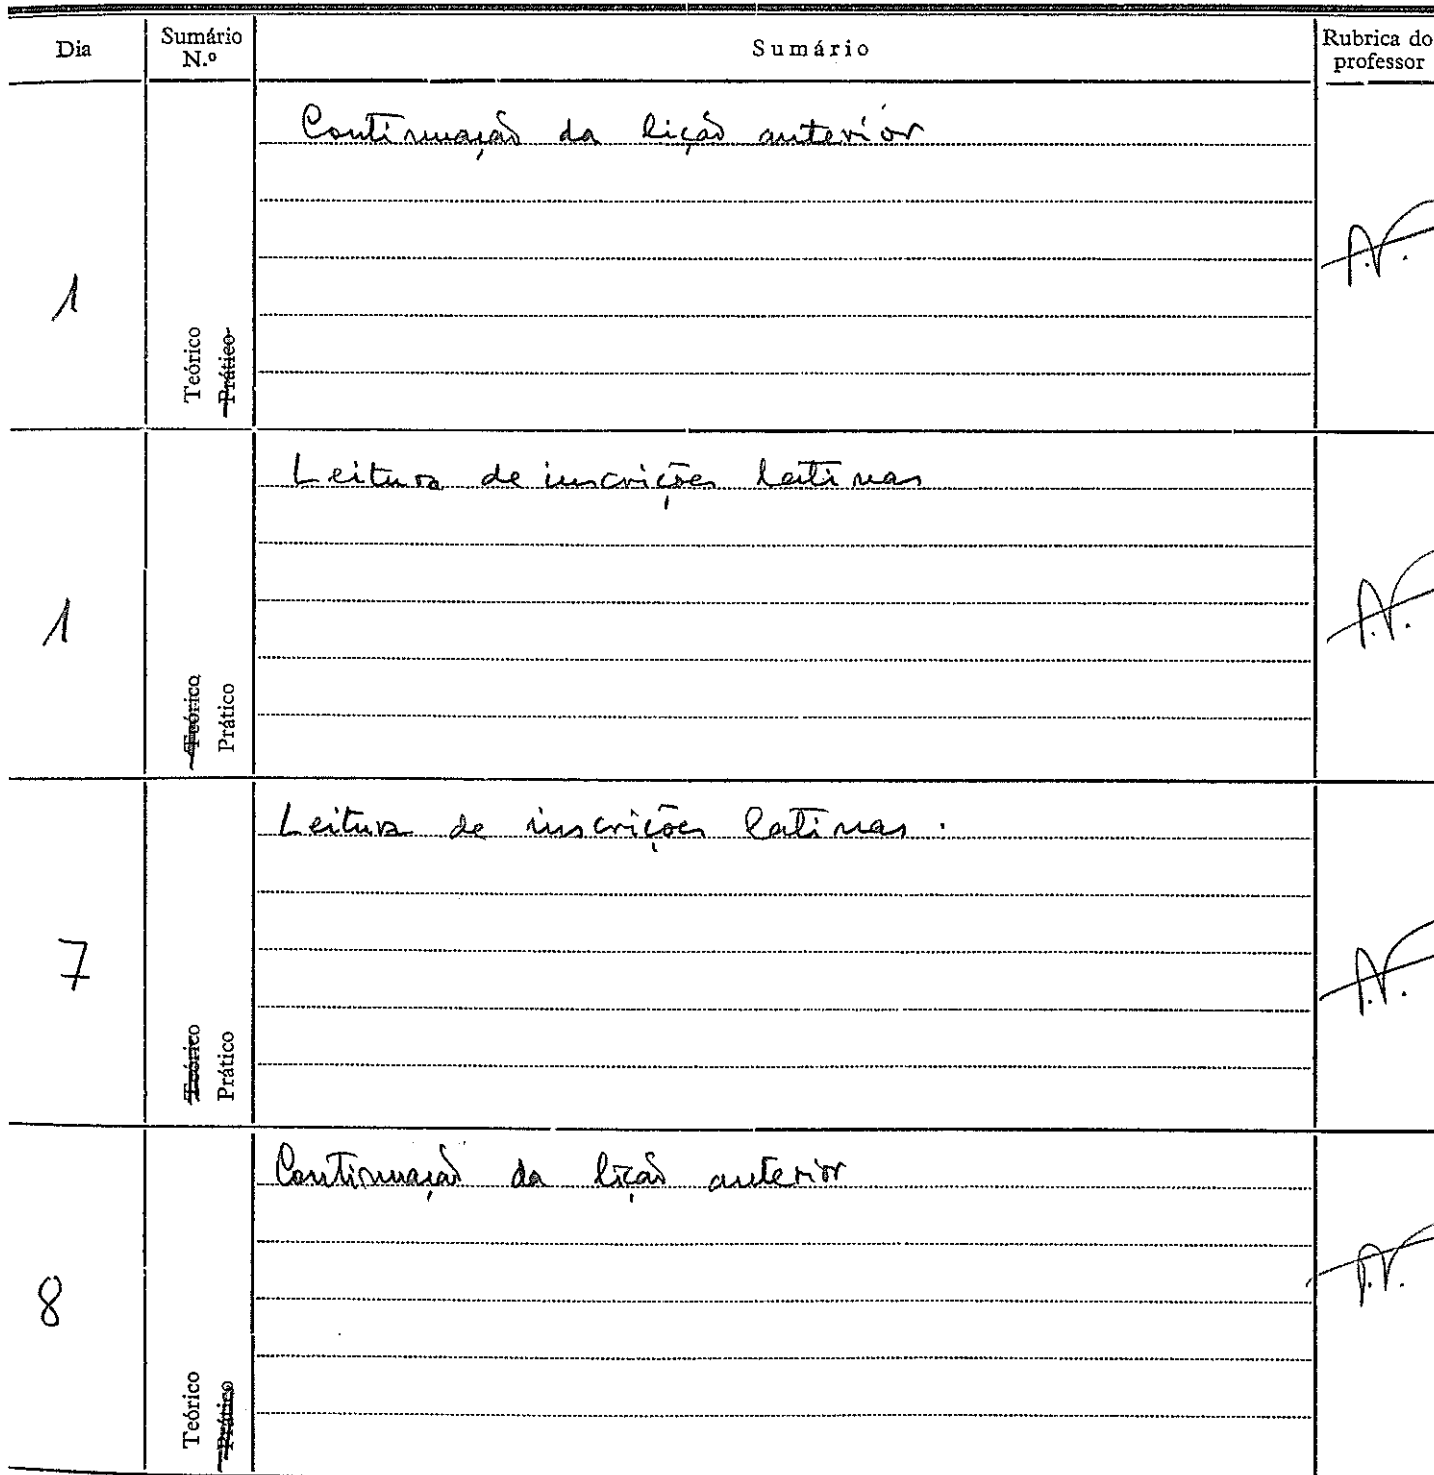 Dia
Sumário N.º
Sumário
Rubrica do professor
Continuação da lição anterior
1
Teórico
Prático
A.V.
Leitura de inscrições latinas
1
Teórico
Prático
A.V.
Leitura de inscrições latinas.
7
Teórico
Prático
A.V.
Continuação da lição anterior
8
Teórico
Prático
A.V.